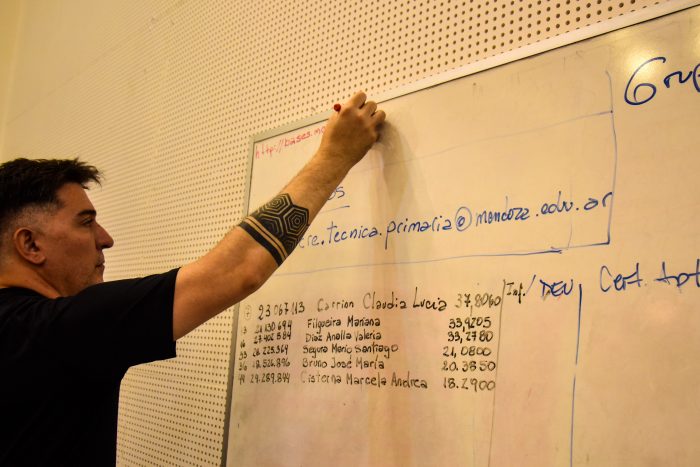 http://bases.m
Grup
os
cre.tecnica.primaria@mendoza.edu.ar
Inf./ DEU Cert. Apt
7 23 067 113 Carrion Claudia Lucia 37,8060
13 Filgueira Mariana 33,9205
16 Diaz Analia Valeria 33,2780
33 Segura Mario Santiago 21,0800
36 18.526.896 Bruno José María 20.3850
44 29.289.844 Cisterna Marcela Andrea 18.2900